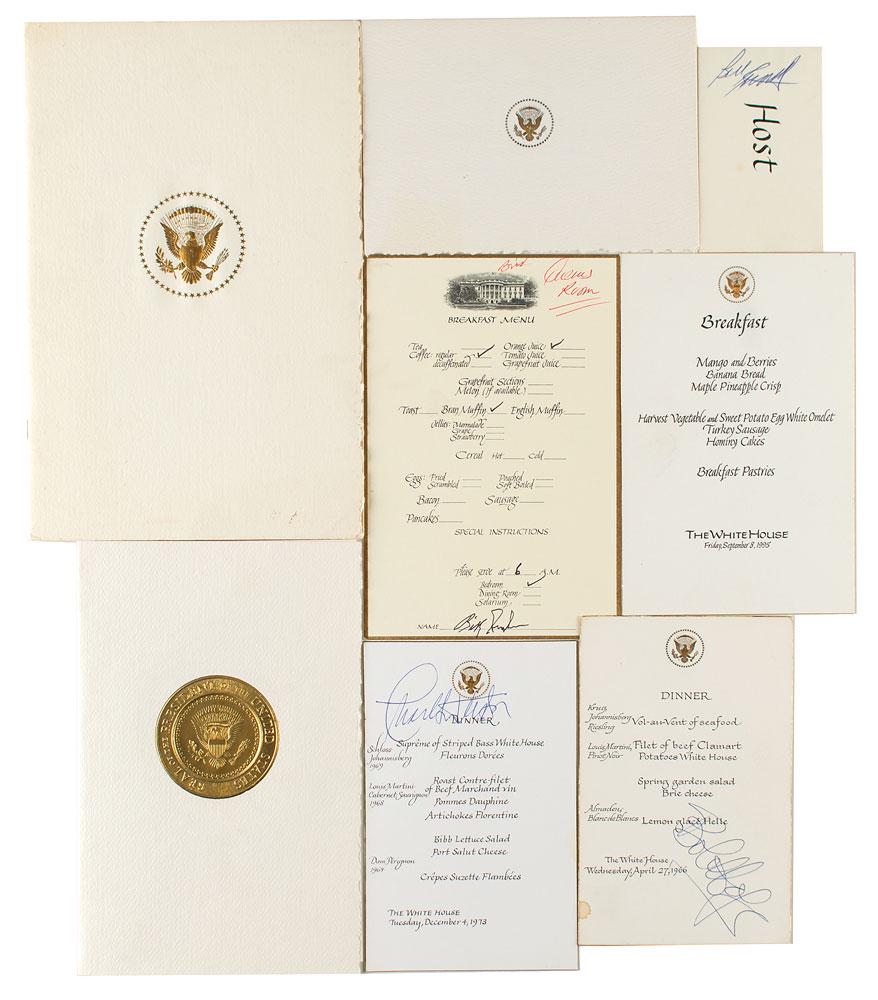 Host
Queens
Room
BREAKFAST MENU
Tea
Coffee: regular
decaffeinated
Orange Juice
Tomato Juice
Grapefruit Juice
Grapefruit Sections
Melon (if available)
Toast Bran Muffin English Muffin
Jellies: Marmalade
Grape
Strawberry
Cereal Hot Cold
Eggs: Fried Poached
Scrambled Soft Boiled
Bacon Sausage
Pancakes
SPECIAL INSTRUCTIONS
Please serve at 6 A.M.
Bedroom
Dining Room
Solarium
NAME
Breakfast
Mango and Berries
Banana Bread
Maple Pineapple Crisp
Harvest Vegetable and Sweet Potato Egg White Omelet
Turkey Sausage
Hominy Cakes
Breakfast Pastries
THE WHITE HOUSE
Friday, September 8, 1995
SEAL OF THE PRESIDENT OF THE UNITED STATES
DINNER
Schloss
Johannisberg
1969
Suprême of Striped Bass White House
Fleurons Dorées
Louis Martini
Cabernet Sauvignon
1968
Roast Contre-filet
of Beef Marchand vin
Pommes Dauphine
Artichokes Florentine
Bibb Lettuce Salad
Port Salut Cheese
Dom Pérignon
1964
Crêpes Suzette Flambées
THE WHITE HOUSE
Tuesday, December 4, 1973
DINNER
Krug
Johannisberg
Riesling
Vol-au-Vent of seafood
Louis Martini
Pinot Noir
Filet of beef Clamart
Potatoes White House
Spring garden salad
Brie cheese
Almaden
Blanc de Blancs
Lemon glacé Helle
The White House
Wednesday, April 27, 1966